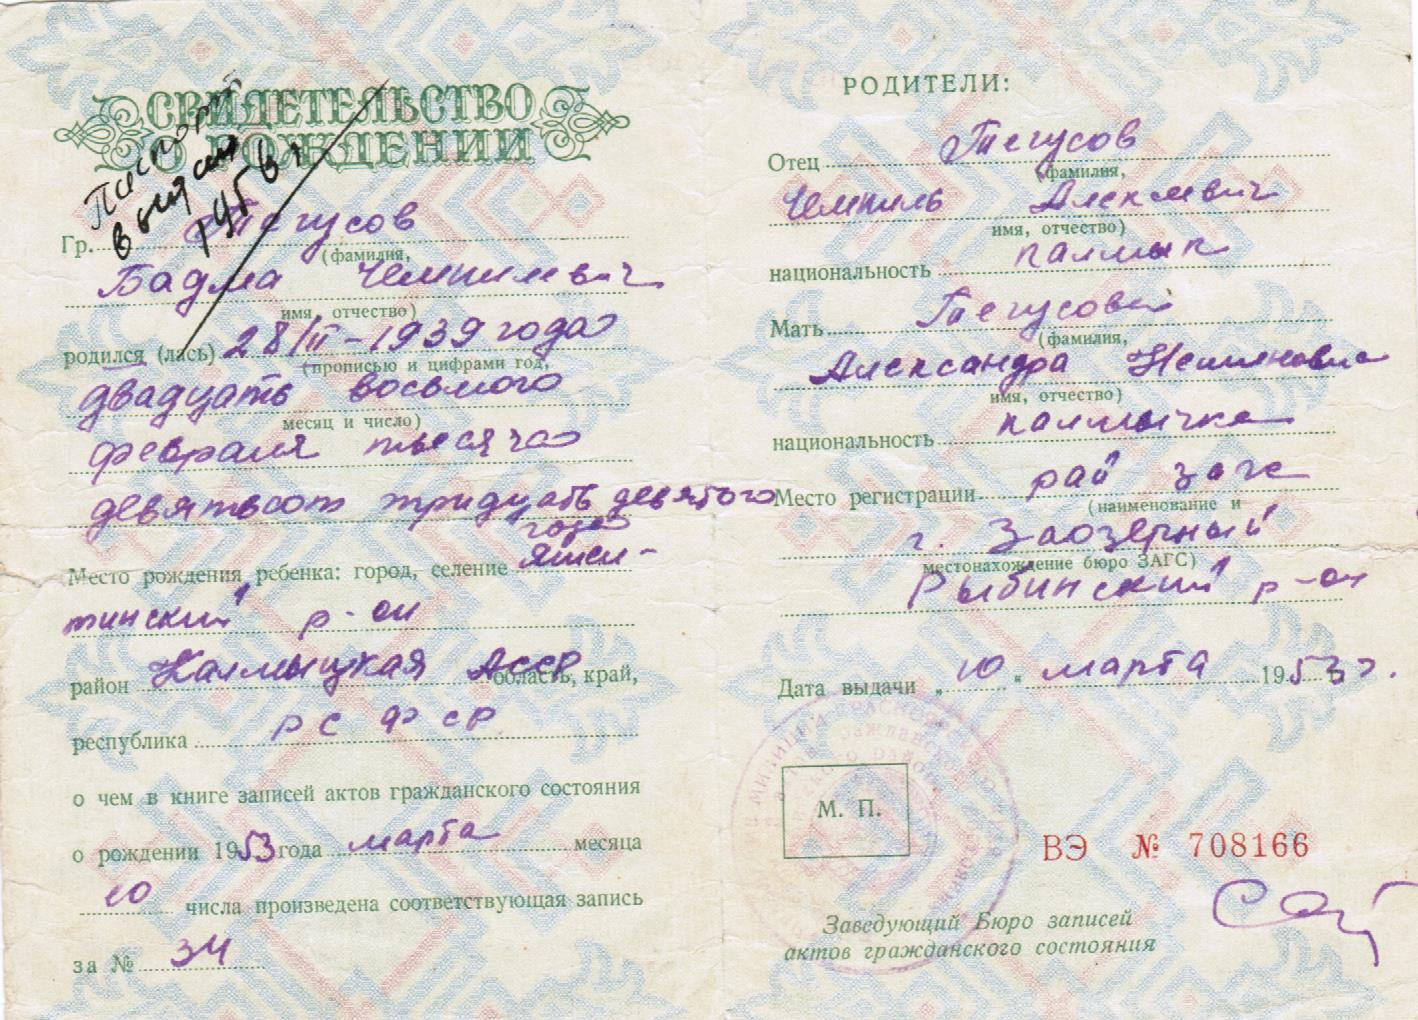 СВИДЕТЕЛЬСТВО
О РОЖДЕНИИ
Паспорт
выдан
Гр. Тегусов
(фамилия,
Бадма Чемпилевич
имя, отчество)
родился (лась) 28/II-1939 года
(прописью и цифрами год,
двадцать восьмого
месяц и число)
февраля тысяча
девятьсот тридцать девятого
года
Место рождения ребенка: город, селение Яшал-
тинский р-он
район Калмыцкая АССР область, край,
республика РСФСР.
о чем в книге записей актов гражданского состояния
о рождении 1953 года марта месяца
10 числа произведена соответствующая запись
за № 34
РОДИТЕЛИ:
Отец Тегусов
(фамилия,
Чемпиль Алексеевич
имя, отчество)
национальность калмык
Мать Тегусова
(фамилия,
Александра
имя, отчество)
национальность калмычка
Место регистрации рай загс
(наименование и
г. Заозерный
местонахождение бюро ЗАГС)
Рыбинский р-он
Дата выдачи „10" марта 1953 г.
М. П.
ВЭ № 708166
Заведующий Бюро записей
актов гражданского состояния